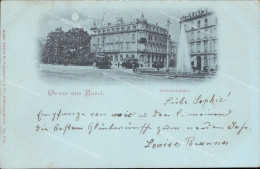 Gruss aus Basel.
Liebe Sophie!
Empfange von mir u den l. meinen
die besten Glückwünsche zum neuen Jahr.
Louise